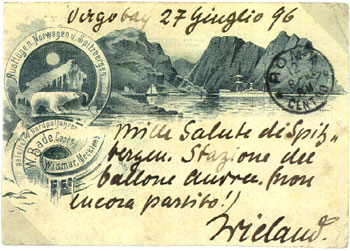 Virgobay 27 Giuglio 96
Ausflüge n. Norwegen u. Spitzbergen
ROMA
CENTRO
W. Bade, Capt.
Wismar, Mecklenb.
Mille Salute di Spitz=
bergen. Stazione del
ballone Andree. (non
encora partito!)
Wieland.